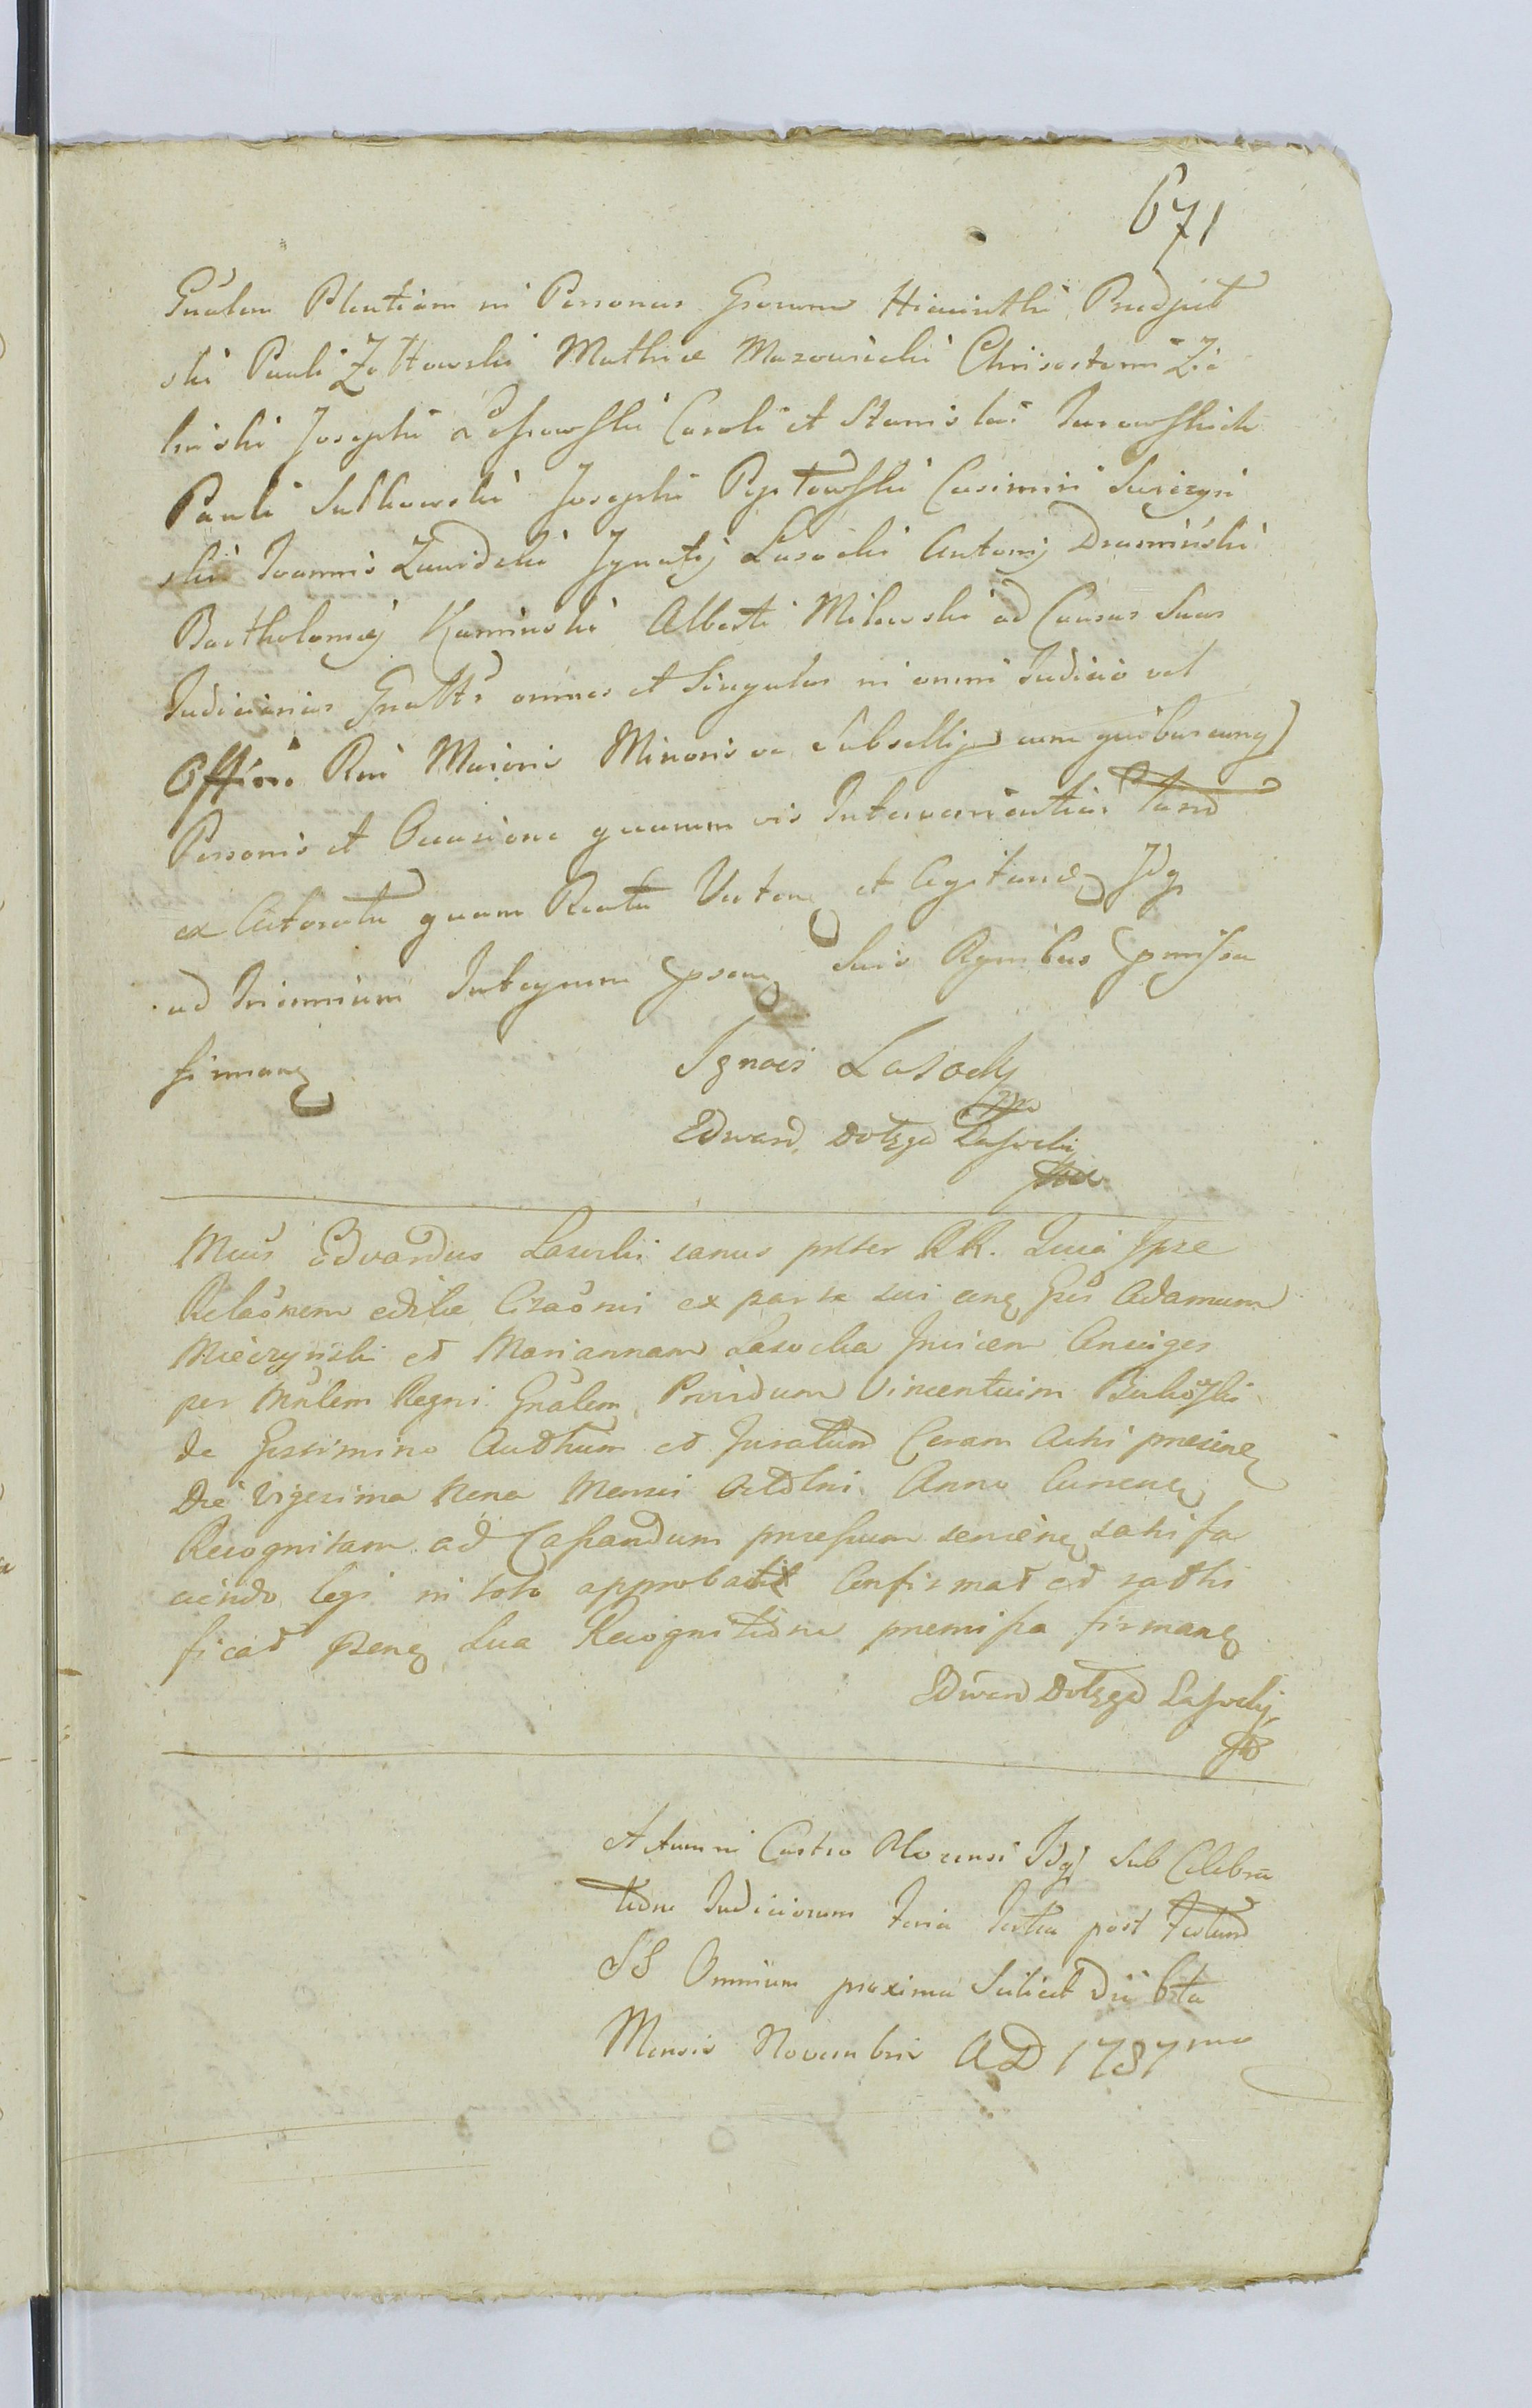 671
Gnalem Plentiam in Personas Gsorum Hiacinthi
ski Pauli Żółtowski Mathiæ Mazowiecki Chrisostomi Zie
liński Josephi Caroli et Stanislai Jurowskich
Pauli Sutkowski Josephi Casimiri
ski Joannis Zawidzki Ignatij Lasocki Antonij Dramiński
Bartholomęj Kaminski Alberti Milewski ad Causas Suas
Judiciarias Gnattr omnes et Singulas in omni Judicio vel
Officio Rni Maioris Minoris ve Subsellijs cum quibuscunq
Personis et Occasione quarum vis Intervenientias tam
ex Actoratu quam Reatu Verten et Agitand Idq
ad Triennium Integrum psen Suis Rgnibus pmissa
firman
Ignacy Lasocki
mp
Edward Dołęga Lassocki
Mcus Edvardus Lasocki sanus pttter RR. Quia Ipse
Relaõnem edilæ Citaõnis ex parte sui cne Gsis Adamum
Mieczyński et Mariannam Lasocka Invicem Coniuges
per Mnlem Regni Gnalem Providum Vincentium
de Gostimino Authum et Juratum Coram Actis presene
Die Vigesima Nona Mensis Octbris Anno Currene
Recognitam ad Cassandum pressum seriene satisfa
ciendo legi in toto approbat Confirmat et rathi
ficat Psene Sua Recognitione premissa firmane
Edward Dołęga Lassocki
mp
Actum in Castro Plocensi Idq Sub Celebra
tione Judiciorum Feria Tertia post Festum
SS Omnium proxima Scilicet Die 6ta
Mensis Novembris AD 1787mo